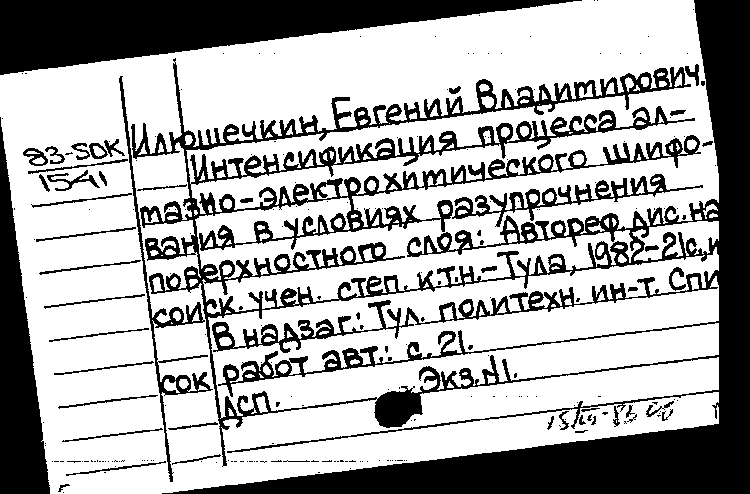 Илюшечкин, Евгений Владимирович.
83-5ДК
15-41
Интенсификация процесса ал-
мазно-электрохимического шлифо-
вания в условиях разупрочнения
поверхностного слоя: Автореф. дис. на
соиск. учен. степ. к.т.н.-Тула, 1982-21с.,и
В надзаг.: Тул. политехн. ин-т. Спи
работ авт.: с. 21.
сок
Дсп.
Экз. N1.